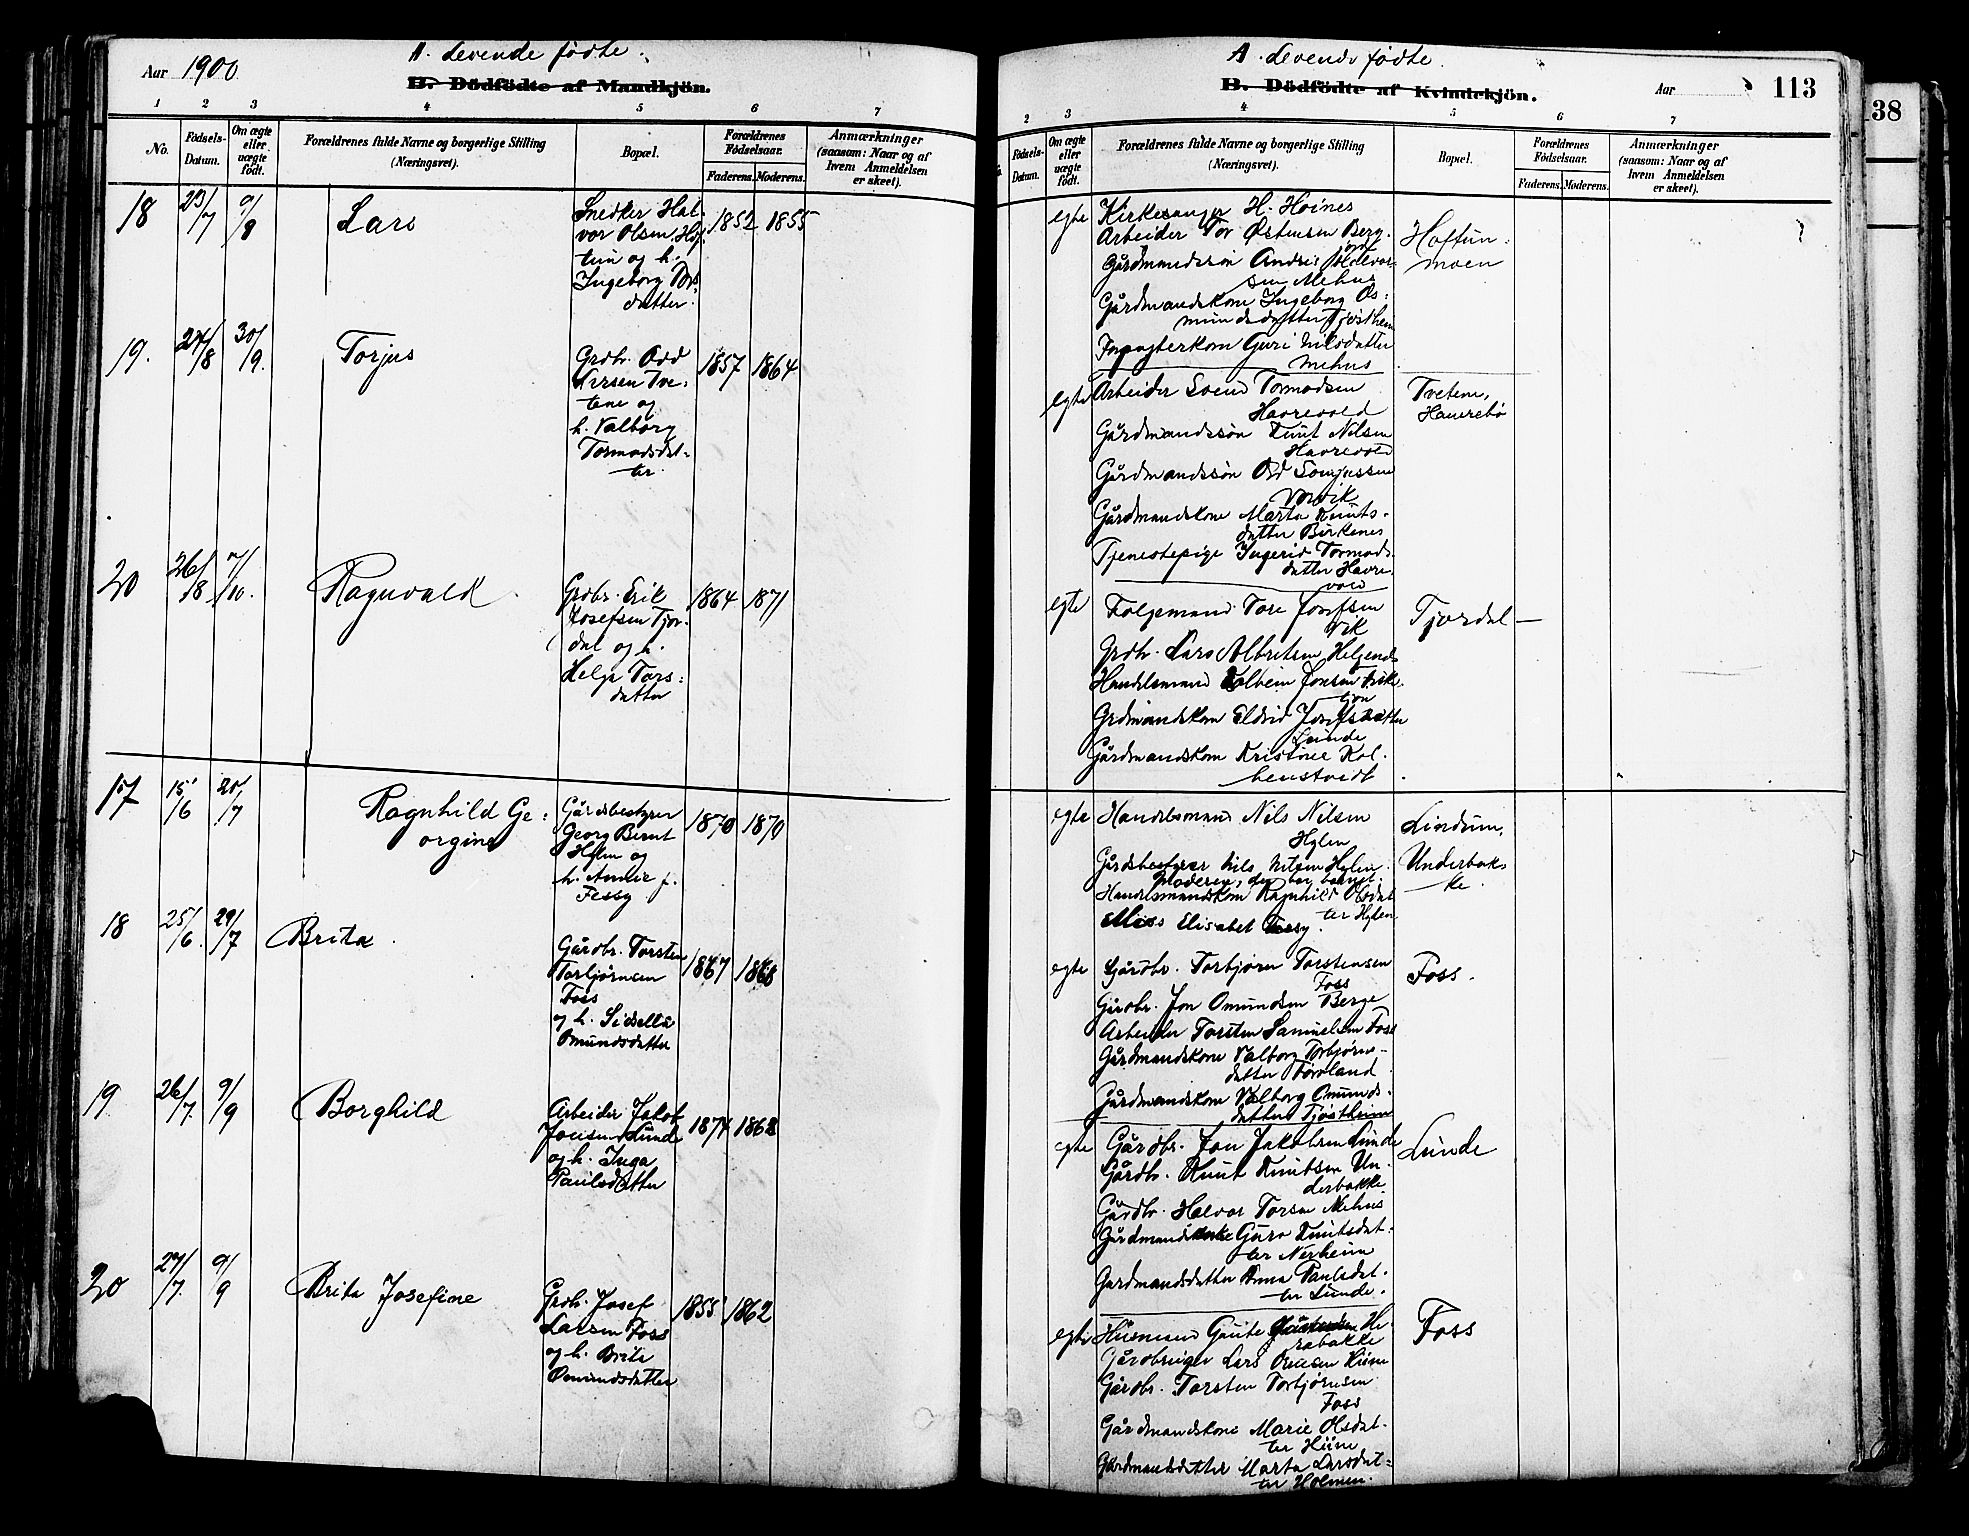 Aar 1900
A. Levende fødte.
B. Dödfödte af Mandkjön.
1 2 3 4 5 6 7
No.
Födsels-
Datum.
Om ægte
eller
uægte
födt.
Forældrenes fulde Navne og borgerlige Stilling
(Næringsvei).
Bopæl.
Forældrenes
Födselsaar.
Faderens. Moderens.
Anmærkninger
(saasom: Naar og af
hvem Anmeldelsen
er skeet).
18 23/7 9/9 Lars
Snedker Hal-
vor Olsen Hof-
tun og h.
Ingeborg Tors-
datter.
1852 1855
19. 24/8 30/9. Torjus
Grdbr. Odd
Larsen Tve-
tene og
h. Valborg
Tormodsdat-
ter.
1857 1864
20 26/8 7/10. Ragnvald
Grdbr. Erik
Josefsen Tjor-
dal og h.
Helga Tors-
datter
1864 1871
17 15/6 20/7 Ragnhild Ge-
orgine
Gårdsbestyrer
Georg Bernt
Hylen og
h. Amlie f.
Fessy
1870 1870
18 25/6. 29/7 Brita
Gårdbr. Torsten
Torbjørnsen
Foss
og h. Sidsella
Omundsdatter
1867 1868
19. 26/7. 9/9 Borghild
Arbeider Jakob
Jonsen Lunde
og h. Inga
Paulsdatter
1874 1868
20 27/7. 9/9 Brita Josefine
Grdb. Josef
Larsen Foss
og h. Brita
Omundsdatter
1855 1862
A. Levende fødte.
B. Dödfödte af Kvindekjön.
Aar
113
38
2 3 4 5 6 7
Födsels-
Datum.
Om ægte
eller
uægte
födt.
Forældrenes fulde Navne og borgerlige Stilling
(Næringsvei).
Bopæl.
Forældrenes
Födselsaar.
Faderens. Moderens.
Anmærkninger
(saasom: Naar og af
hvem Anmeldelsen
er skeet).
egte Kirkesanger H. Høines
Arbeider Tor Østensen Berg.
Gårdmandssøn Andris Halvor-
sen Mehus
Gårdmandskone Ingeborg Os-
mundsdatter Tjøstheim
Guri Nilsdatter
Mehus
Hoftun-
moen
egte Arbeider Svend Tormodsen
Havrevold
Gårdmandssøn Knut Nilsen
Havrevold
Gårdmandssøn Odd
Gårdmandskone Marta Knuts-
datter Birkenes
Tjenestepige Ingerid Tormods-
datter Havre-
vold
Tvetene,
Hauerebø
egte Folgemand Tore Josefsen
Vik
Grdbr. Lars Albretsen
Handelsmand Kolben Jonsen
Grdmandskone Eldrid Josefsdatter
Lunde
Gårdmandskone Kristine Kol-
benstvedt
Tjordal
egte Handelsmand Nils Nilsen
Hylen
Gårdsbestyrer Nils Nilsen Hylen.
Moderen, der bar barnet.
Handelsmandskone Ragnhild Olsdat-
ter Hylen
Miss Elisabet Fessy.
Lindum,
Underbak-
ke.
egte Gårdbr. Torbjørn Torstensen
Foss
Gårdbr. Jon Omundsen Berge
Arbeider Torsten Samuelsen Foss
Gårdmandskone Valborg Torbjørns-
datter Førland
Gårdmandskone Valborg Omunds-
datter Tjøstheim
Foss.
egte Gårdbr. Jon Jakobsen Lunde
Gårdbr. Knut Knutsen Un-
derbakke
Gårdbr. Halvor Torsen Mehus
Guro Knutsdat-
ter Nerheim
Gardmandsdatter Anna Paulsdat-
ter Lunde.
Lunde
egte Husmand Gaute He-
rabakke
Gårdbruger Lars Hiim
Gårdbr. Torsten Torbjørnsen
Foss
Gårdmandskone Marie Olsdat-
ter Hiim
Gårdmandsdatter Marta Larsdat-
ter Holmen.
Foss